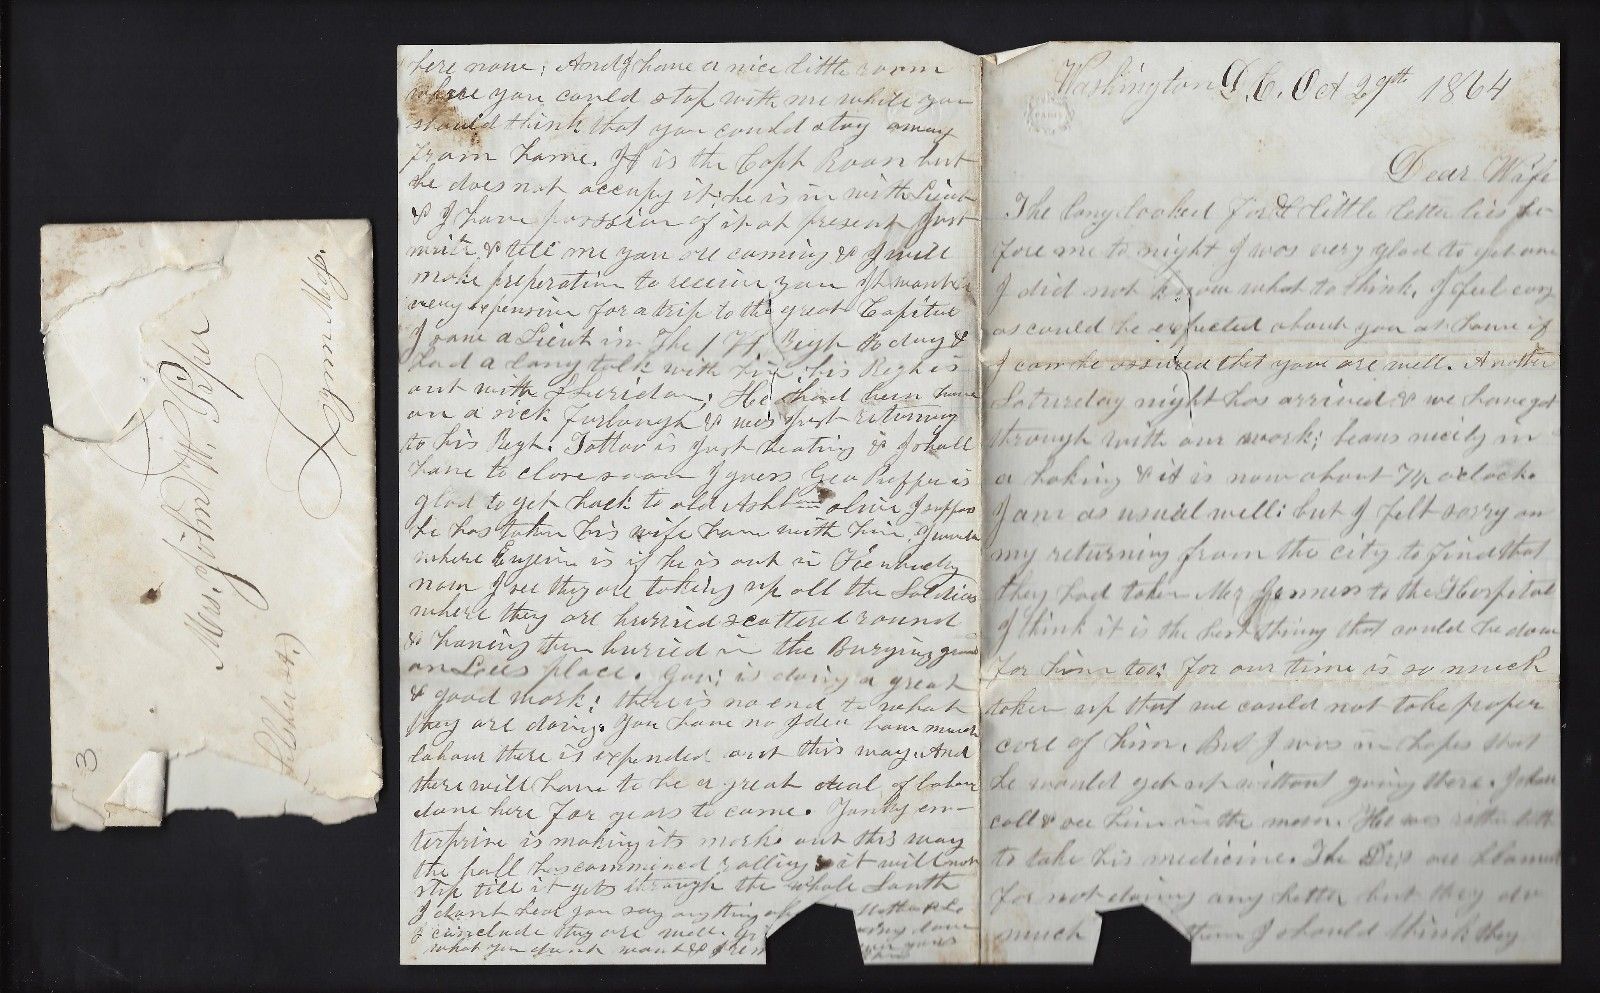 Mrs. John W. Piper
Lynn Mass.
3
Washington D.C. Oct 29th 1864
Dear Wife
The long looked for little letter lies be-
fore me to night I was very glad to get one
I did not know what to think. I feel easy
as could be expected about you at home if
I can be assured that you are well. Another
Saturday night has arrived & we have got
through with our work; beans nicely in
a baking & it is now about 7 oclock.
I am as usual well: but I felt sorry on
my returning from the city to find that
they had taken Mr to the Hospital
I think it is the best thing that could be done
for him too: for our time is so much
taken up that we could not take proper
care of him. But I was in hopes that
he would get up without going there. I shall
call & see him in the morn. He was rather
to take his medicine. The Drs are
for not doing any better but they do
much them I should think they
here now; And I have a nice little room
where you could stop with me while you
should think that you could stay away
from home. It is the Capt Room but
he does not occupy it; he is in with Lieut
& I have possion of it at present Just
write & tell me you are coming & I will
make preperation to receive you It wont be
very expensive for a trip to the great Capitol
I saw a Lieut in The Regt to day &
had a long talk with him, his Regt is
out with Sheridan; He had been home
on a sick furlough & was just returning
to his Regt. Tattoo is just beating & I shall
have to close soon I guess Geo is
glad to get back to old Ashland I suppose
he has taken his wife home with him, I wonder
where Eugene is if he is out in Kentucky
now I see they are taking up all the Soldiers
where they are burried scattered round
& having them buried in the Burying ground
on Lees place. Gov; is doing a great
& good work; there is no end to what
they are doing. You have no Idea how much
labour there is expended out this way. And
there will have to be a great deal of labour
done here for years to come. Yanky en-
terprise is making its mark out this way
the ball has commenced rolling & it will not
stop till it gets through the whole South
I dont hear you say anything of
I conclude they are well
what you want &